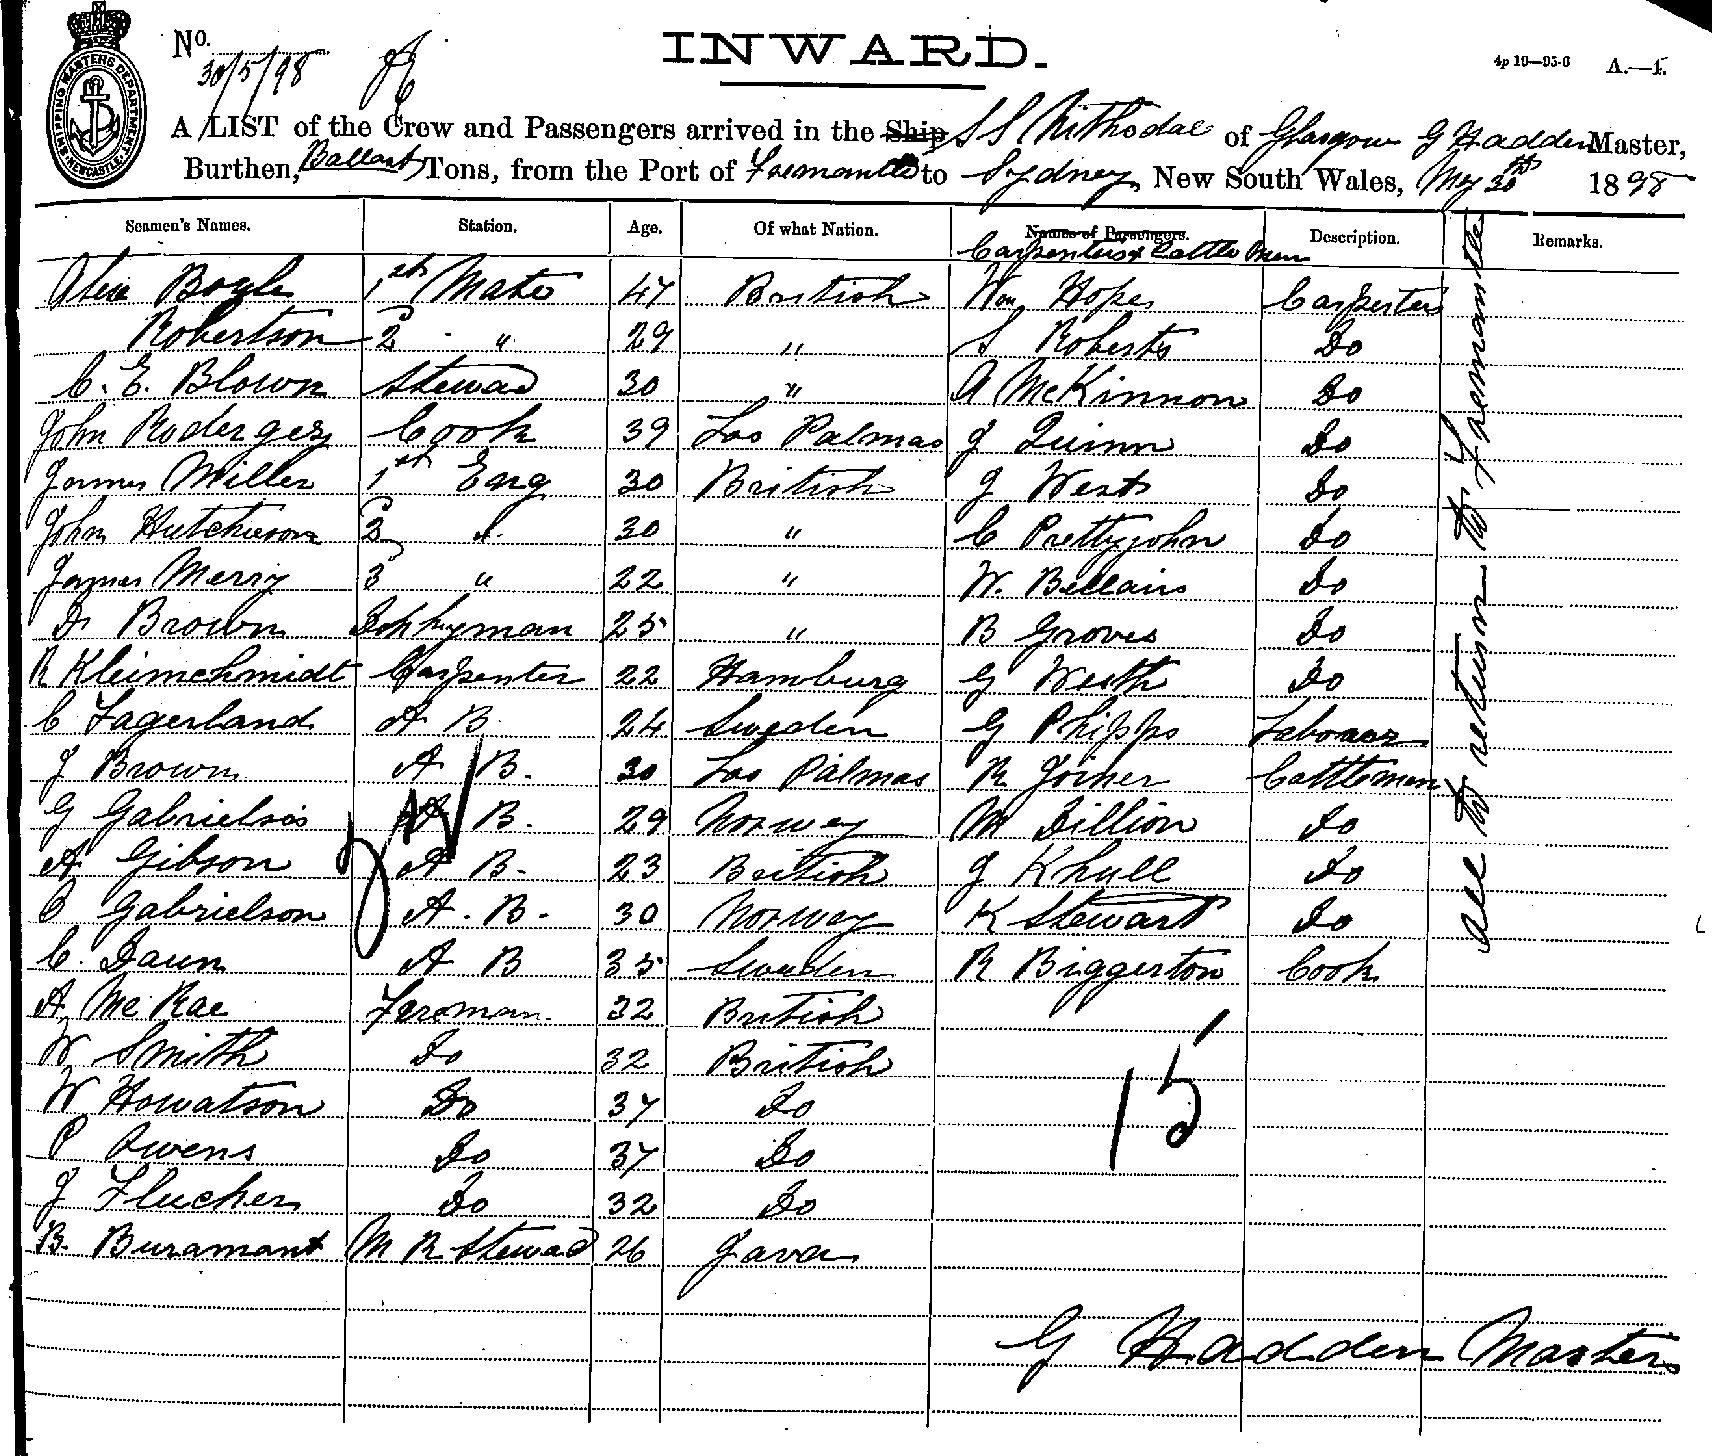 No. INWARD. 4p 10—95-6 A.—1.
SHIPPING MASTERS DEPARTMENT NEWCASTLE
30/5/98
A LIST of the Crew and Passengers arrived in the Ship S S Nithsdale of Glasgow G Hadden Master,
Burthen, Ballast Tons, from the Port of Fremantle to Sydney New South Wales, May 30th 1898
Seamen's Names. Station. Age. Of what Nation. Names of Passengers. Description. Remarks.
Carpenters & Cattle Men
Boyle 1st Mate 47 British Wm Hope Carpenter
Robertson 2 " 29 " S Roberts Do
C. E. Blown Steward 30 " A McKinnon Do
John Rodergez Cook 39 Las Palmas J Quinn Do
James Miller 1st Eng 30 British J West Do
John Hutchieson 2 " 30 " C Prettyjohn Do
James Merry 3 " 22 " W. Bellairs Do
D Brown Donkyman 25 " B Groves Do
R Kleimchmidt Carpenter 22 Hamburg G Werth Do
C Fagerland A B. 24 Sweden G Phipps Labourer
J Brown A B. 30 Las Palmas R Joiner Cattleman
G Gabrielsois A B. 29 Norway M Dillion Do
A Gibson A B. 23 British J Khull Do
O Gabrielson A. B. 30 Norway K Stewart Do
C. Daun A B 35 Sweden R Biggerton Cook
A McRae Fireman. 32 British
W Smith Do 32 British
W Howatson Do 37 Do
P Owens Do 37 Do
J Flucker Do 32 Do
B. Buramant M R Steward 26 Java
21
15
All to return to Fremantle
G Hadden Master